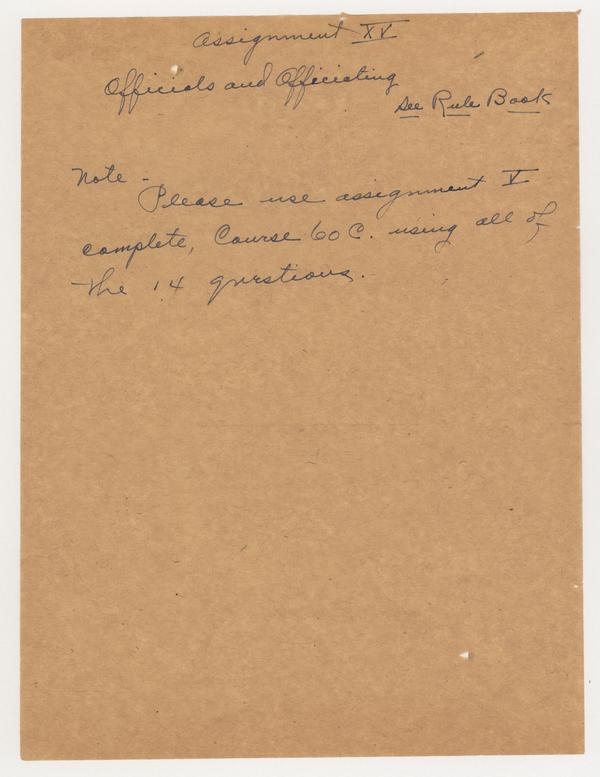 Assignment XV
Officials and Officiating
See Rule Book
Note -
Please use assignment V
complete, Course 60 C. using all of
the 14 questions.